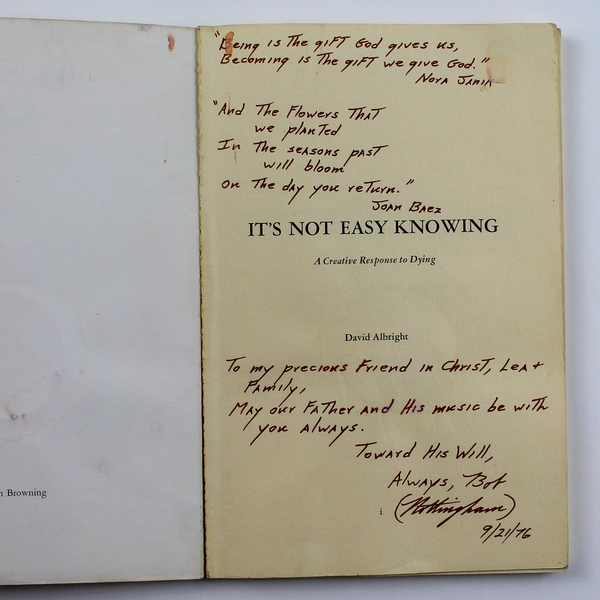 "Being is The gift God gives us,
Becoming is The gift we give God."
Nora Janin
"And The Flowers That
we planted
In The seasons past
will bloom
on The day you return."
Joan Baez
IT'S NOT EASY KNOWING
A Creative Response to Dying
David Albright
To my precious Friend in Christ, Lea +
Family,
May our Father and His music be with
you always.
Toward His Will,
Always, Bob
n Browning
i (Nottingham)
9/21/76